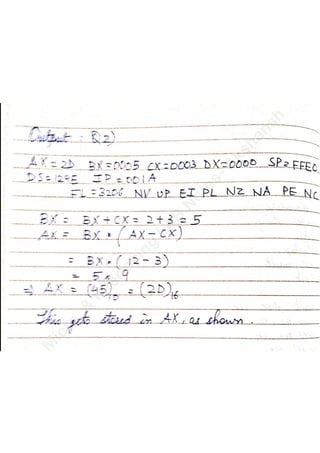 Output : Q2)
AX = 2D BX=0005 CX=0003 DX=0000 SP=FFEC
DS=129E IP=001A
FL=3206 NV UP EI PL NZ NA PE NC
BX = BX+CX = 2+3 = 5
AX = BX * (AX-CX)
= BX*(12-3)
= 5*9
⇒ AX = (45)10 = (2D)16
This gets stored in AX, as shown.